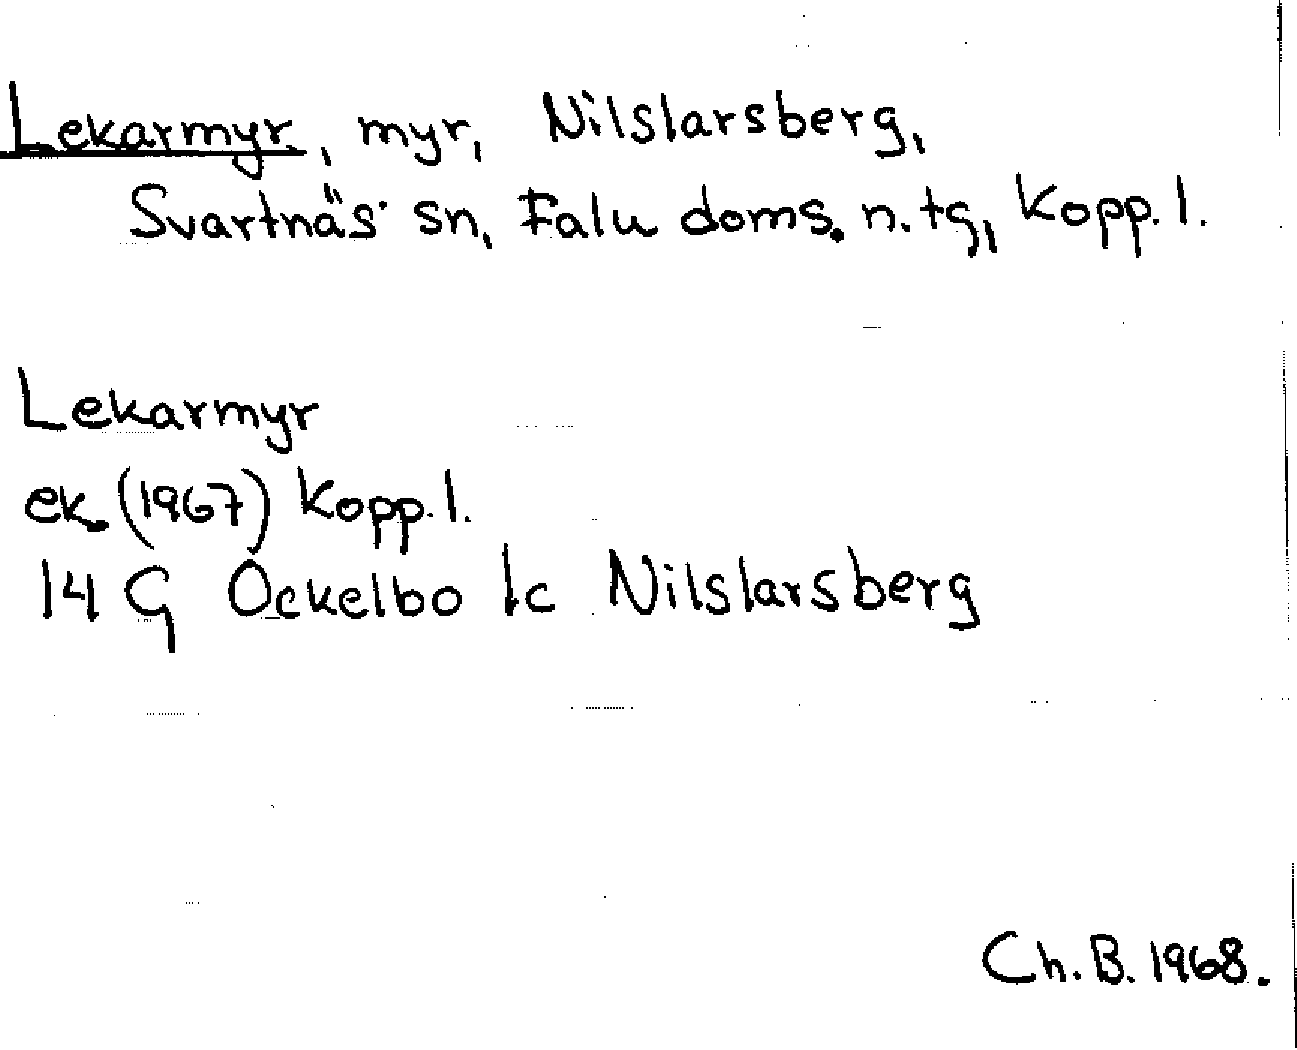 Lekarmyr, myr, Nilslarsberg,
Svartnäs sn, Falu doms. n. tg, Kopp. l.
Lekarmyr
ek (1967) Kopp. l.
14 G Ockelbo 1c Nilslarsberg
Ch. B. 1968.